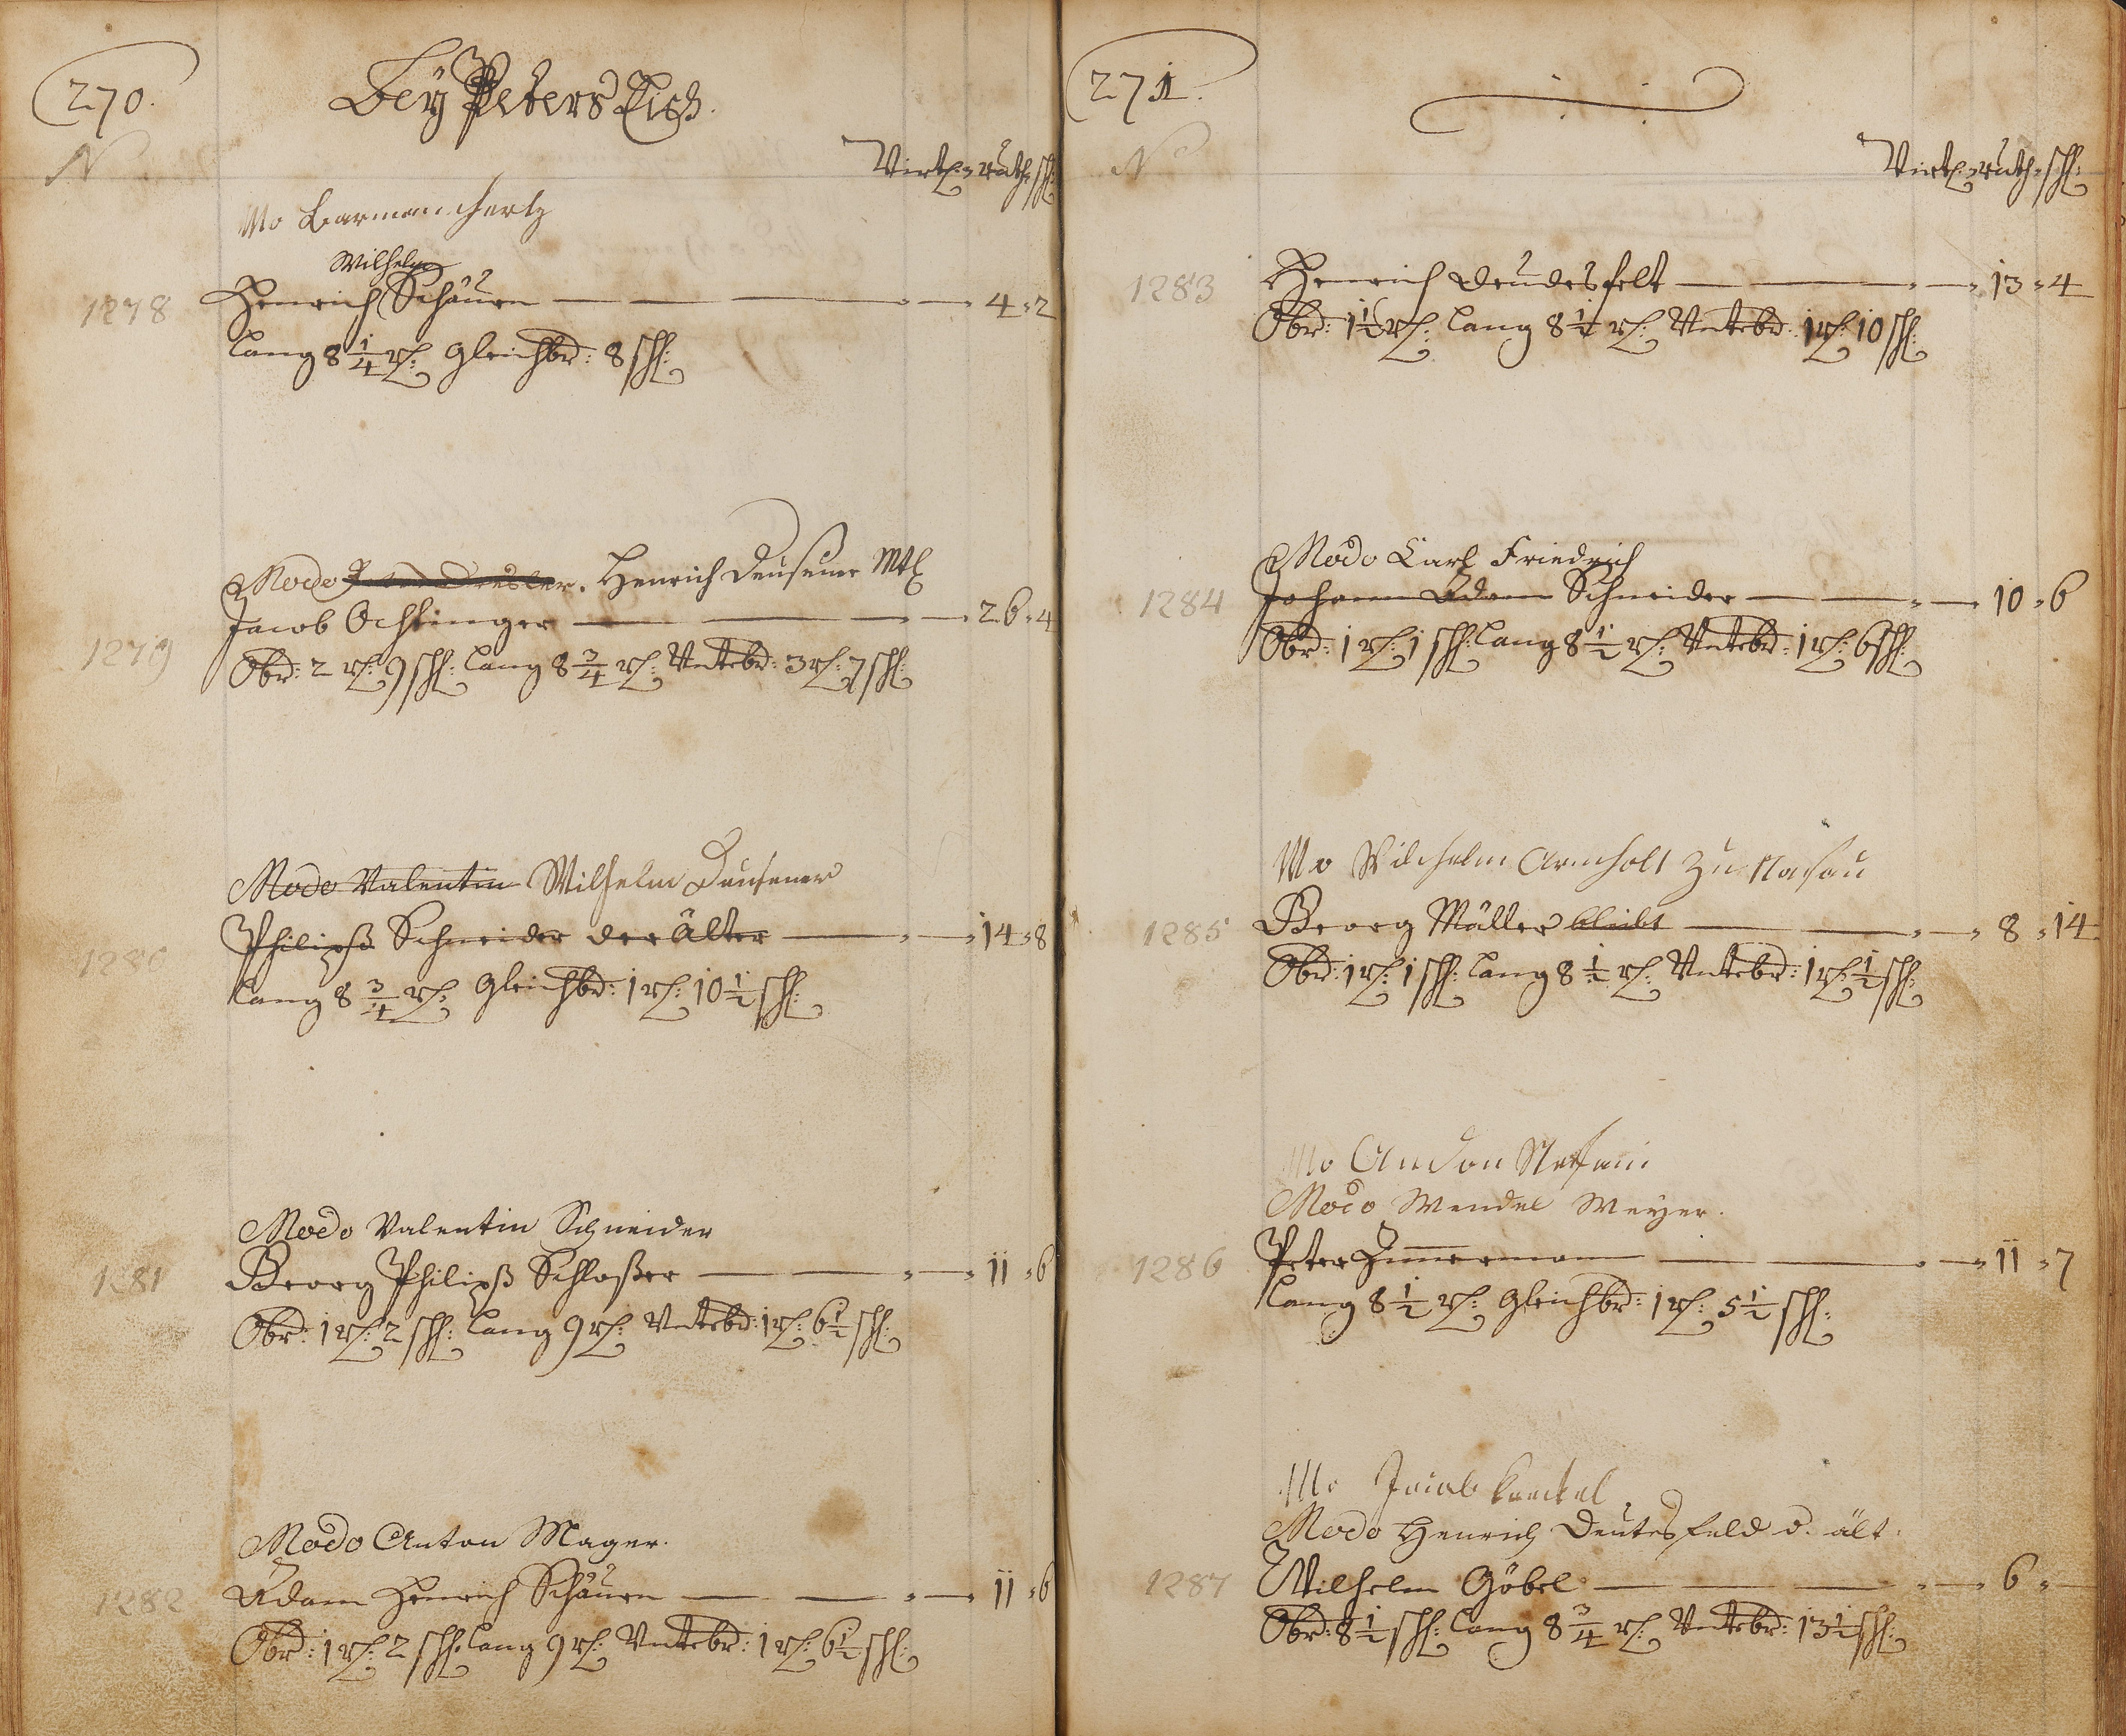 270.
Beÿ Peters Eich.
N
Virtl: ruth: sch:
Mo Barman hertz
Wilhelm
1278 Henrich Schäuren — 4 " 2
Lang 8 1/4 r: gleichbr: 8 sch:
Modo Henrich Deusener Mtl
1279 Jacob Ochtinger — 26 " 4
Obr: 2 r: 9 sch: Lang 8 3/4 r: Untebr: 3 r: 7 sch:
Modo Valentin Wilhelm Deusener
1280 Philipß Schneider der älter — 14 " 8
Lang 8 3/4 r: gleichbr: 1 r: 10 1/2 sch:
Modo Valentin Schneider
1281 Georg Philipß Schloßer — 11 " 6
Obr: 1 r: 2 sch: Lang 9 r: Untebr: 1 r: 6 1/2 sch:
Modo Anton Mager.
1282 Adam Henrich Schäuren — 11 " 6
Obr: 1 r: 2 sch: Lang 9 r: Untebr: 1 r: 6 1/2 sch:
271.
No
Virtl: ruth: sch:
1283 Henrich Deudesfelt — 13 " 4
Obr: 1 1/2 r: Lang 8 1/2 r: Untebr: 1 r: 10 sch:
Modo Carl Friedrich
1284 Johann Adam Schneider — 10 " 6
Obr: 1 r: 1 sch: Lang 8 1/2 r: Untebr: 1 r: 6 sch:
Mo Wilhelm Arnholt zu Nasau
1285 Georg Müller bleibt — 8 " 14
Obr: 1 r: 1 sch: Lang 8 1/2 r: Untebr: 1 r: 1/2 sch:
Mo Andon
Modo Wendel Meyer.
1286 Peter Zimmermann — 11 " 7
Lang 8 1/2 r: gleichbr: 1 r: 5 1/2 sch:
Mo Jacob Kunckel
Modo Henrich Deutesfeld d. ält.
1287 Wilhelm Göbel — 6 " —
Obr: 8 1/2 sch: Lang 8 3/4 r: Untebr: 13 1/2 sch: